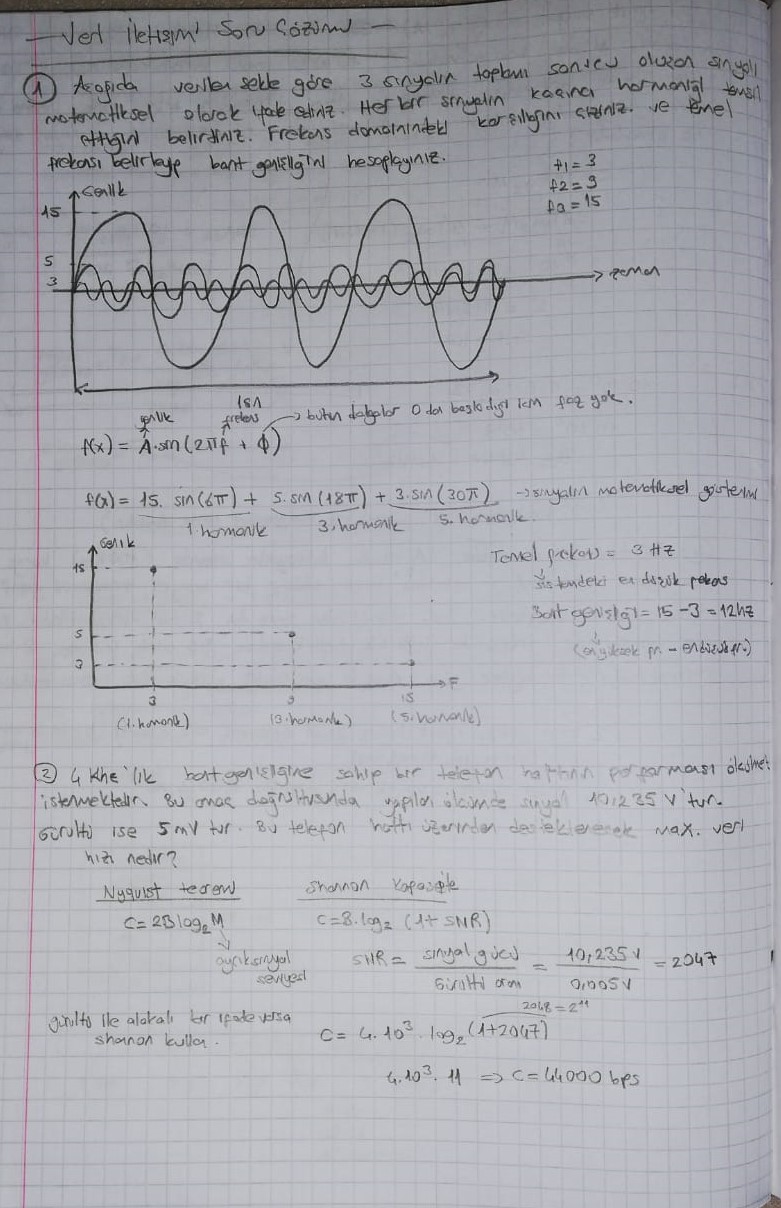 — Veri İletişimi Soru Çözümü —
① Aşağıda verilen şekle göre 3 sinyalin toplamı sonucu oluşan sinyali
matematiksel olarak ifade ediniz. Her bir sinyalin kaçıncı harmoniği temsil
ettiğini belirtiniz. Frekans domainindeki karşılığını çiziniz. ve temel
frekansı belirleyip bant genişliğini hesaplayınız.
f1 = 3
f2 = 9
f3 = 15
Genlik
15
5
3
zaman
1sn
genlik
frekans
→ bütün dalgalar 0 dan başladığı için faz yok.
f(x) = A.sin(2πf + φ)
f(x) = 15. sin(6π) + 5. sin(18π) + 3. sin(30π) → sinyalin matematiksel gösterimi
1. harmonik 3. harmonik 5. harmonik.
Genlik
15
5
3
3 9 15 F
(1. harmonik) (3. harmonik) (5. harmonik)
Temel frekans = 3 Hz
sistemdeki en düşük frekans
Bant genişliği = 15 - 3 = 12hz
(en yüksek fr. - en düşük fr.)
② 4 Khz'lik bant genişliğine sahip bir telefon hattının performansı ölçülmek
istenmektedir. Bu amaç doğrultusunda yapılan ölçümde sinyal 10,235 V'tur.
Gürültü ise 5mV tur. Bu telefon hattı üzerinden desteklenecek max. veri
hızı nedir?
Nyquist teoremi Shannon Kapasite
C = 2B log₂ M C = B. log₂ (1 + SNR)
ayrık sinyal
seviyesi
SNR = sinyal gücü / Gürültü oranı = 10,235 V / 0,005V = 2047
gürültü ile alakalı bir ifade varsa
shanon kullan.
2048 = 2¹¹
C = 4.10³. log₂ (1+2047)
4.10³. 11 => C = 44000 bps